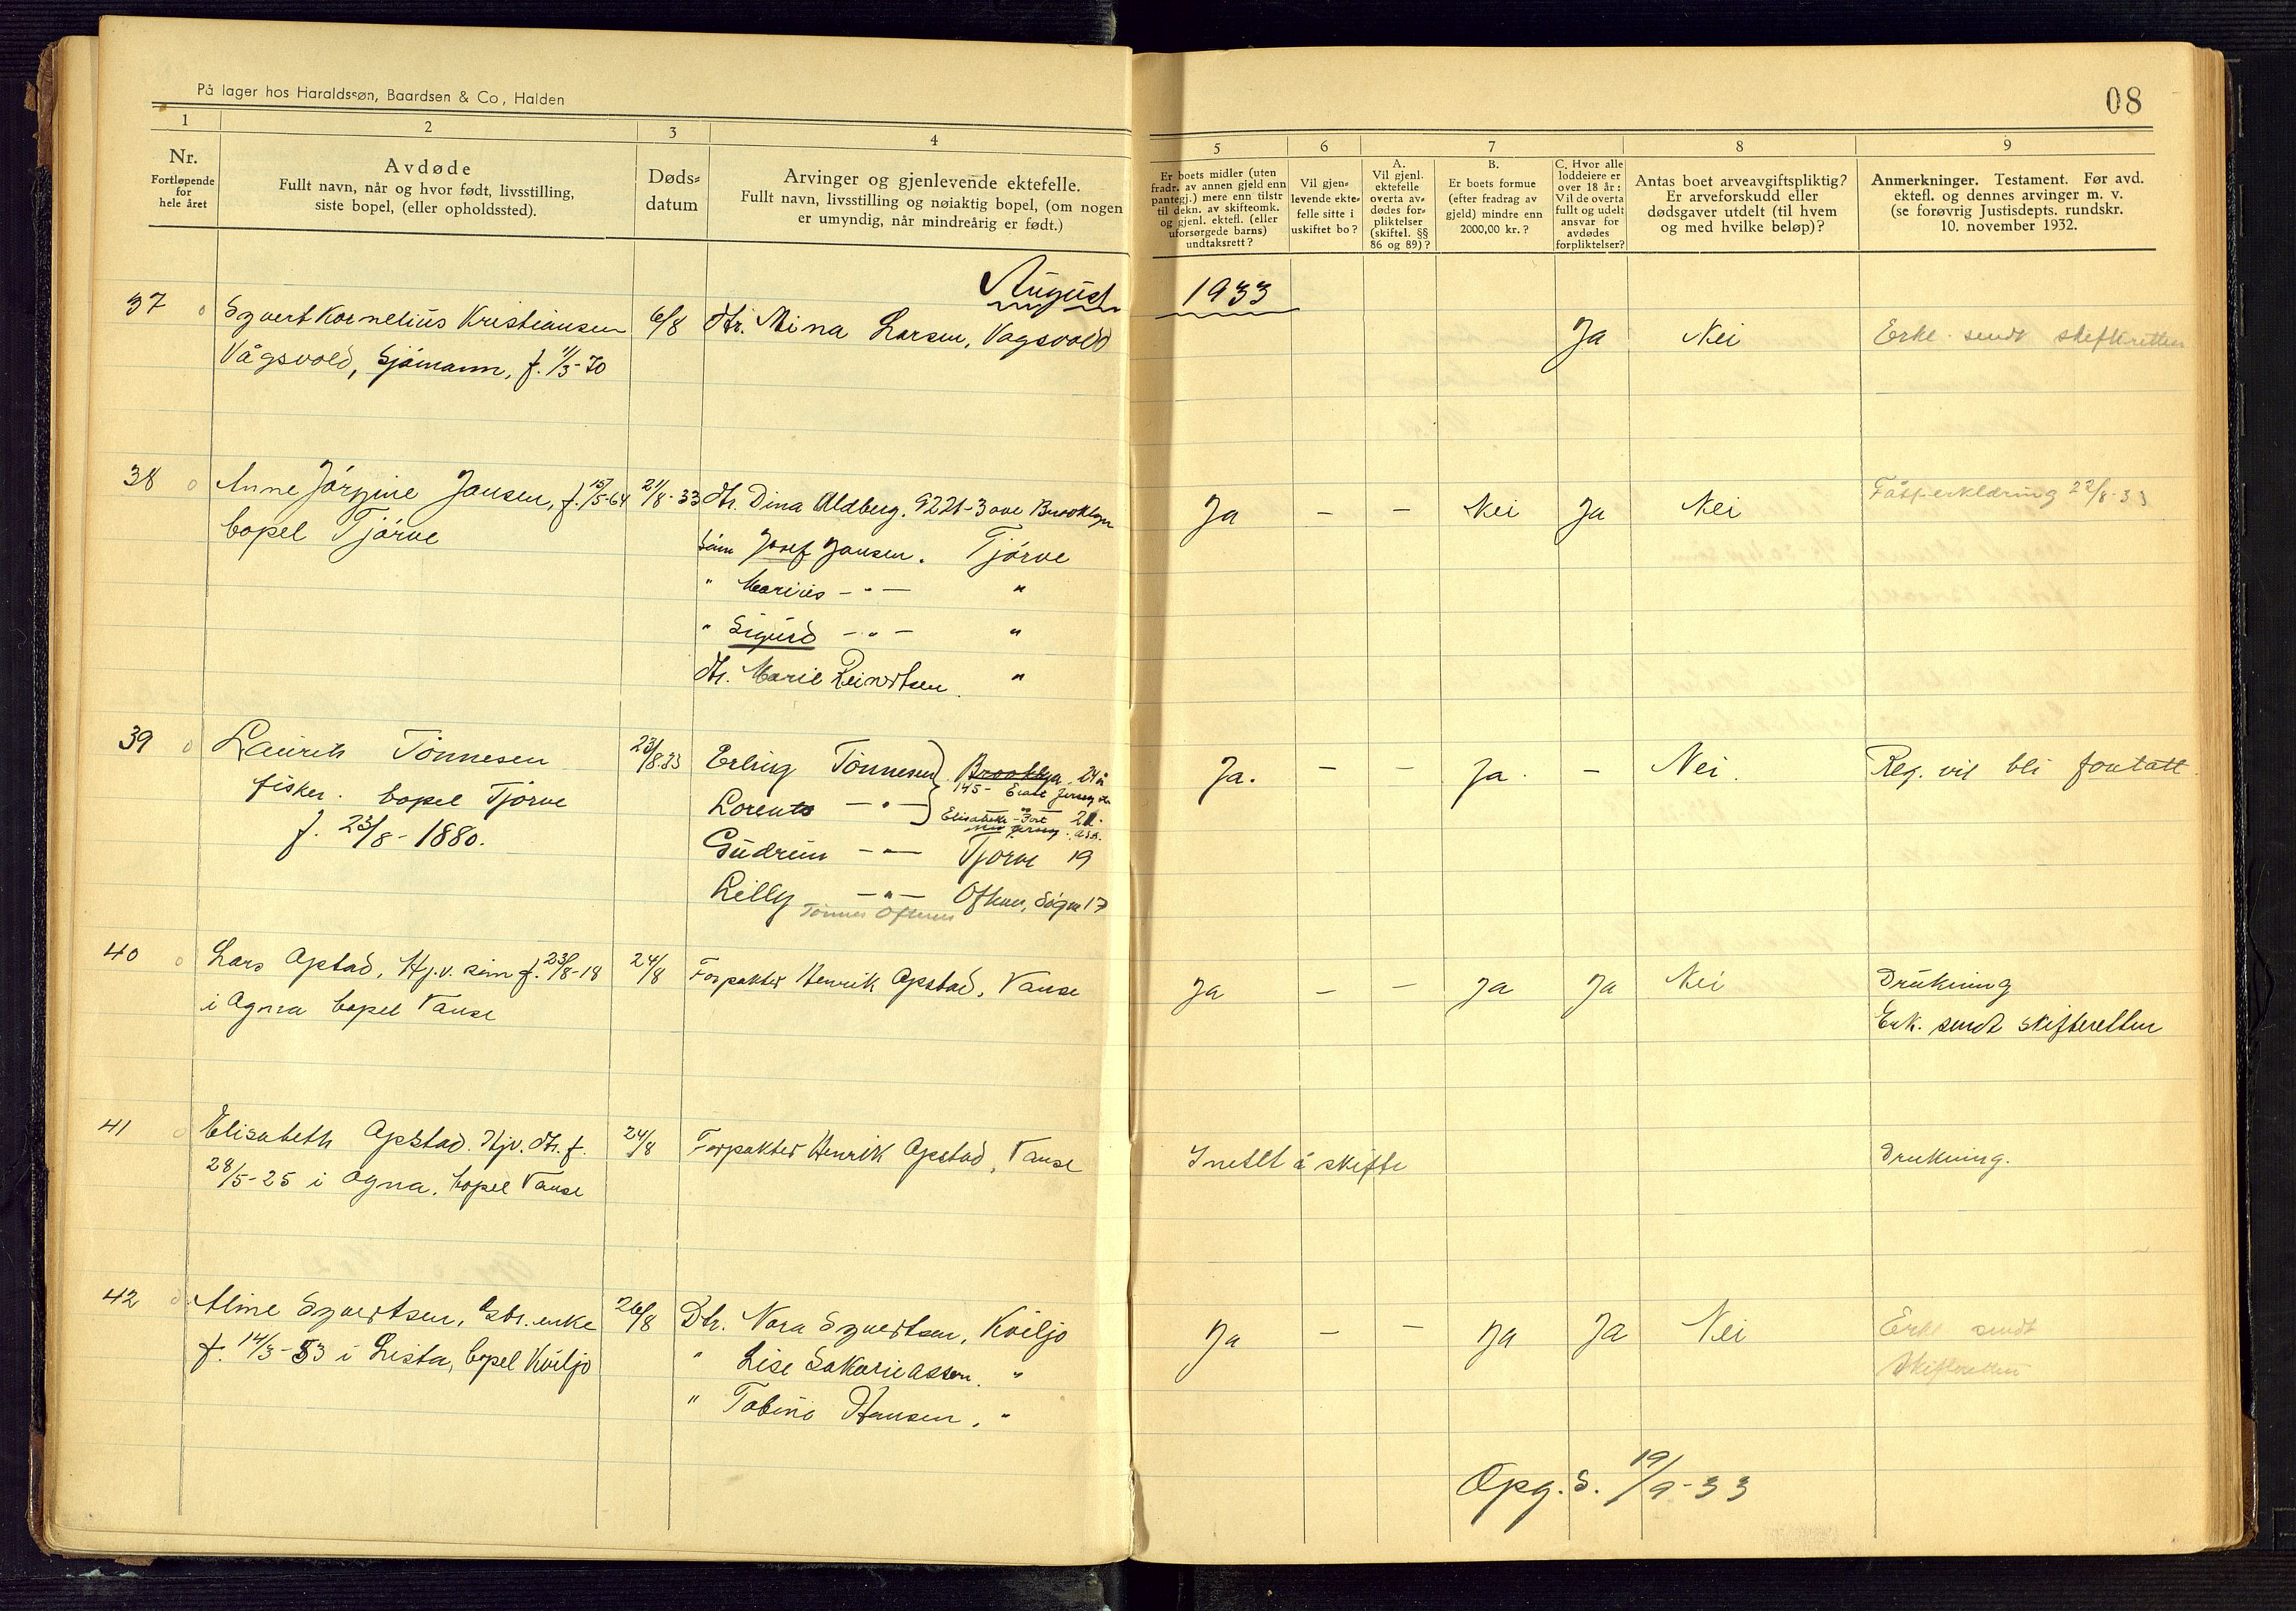 På lager hos Haraldssøn, Baardsen & Co, Halden
08
1 2 3 4 5 6 7 8 9
Nr.
Fortløpende
for
hele året
Avdøde
Fullt navn, når og hvor født, livsstilling,
siste bopel, (eller opholdssted).
Døds=
datum
Arvinger og gjenlevende ektefelle.
Fullt navn, livsstilling og nøiaktig bopel, (om nogen
er umyndig, når mindreårig er født.)
Er boets midler (uten
fradr. av annen gjeld enn
pantegj.) mere enn tilstr
til dekn. av skifteomk.
og gjenl. ektefl. (eller
uforsørgede barns)
undtaksrett?
Vil gjen=
levende ekte=
felle sitte i
uskiftet bo?
A.
Vil gjenl.
ektefelle
overta av=
dødes for=
pliktelser
(skiftel. §§
86 og 89)?
B.
Er boets formue
(efter fradrag av
gjeld) mindre enn
2000,00 kr.?
C. Hvor alle
loddeiere er
over 18 år:
Vil de overta
fullt og udelt
ansvar for
avdødes
forpliktelser?
Antas boet arveavgiftspliktig?
Er arveforskudd eller
dødsgaver utdelt (til hvem
og med hvilke beløp)?
Anmerkninger. Testament. Før avd.
ektefl. og dennes arvinger m. v.
(se forøvrig Justisdepts. rundskr.
10. november 1932.
August 1933
37 Syvert Kornelius Kristiansen 6/8 dtr. Mina Larsen, Vågsvold Ja Nei Erkl. sendt skifteretten
Vågsvold, Sjømann, f. 11/5-70
38 Anne Jørgine Jansen, f. 15/5-64 21/8-33 dtr. Dina Aldberg. 9221-3 ave Brooklyn Ja – – Nei Ja Nei 22/8-33
bopel Tjørve
Sønn Josef Jansen. Tjørve
" Marius – " – "
" Sigurd – " – "
dtr. Marie Reinertsen. "
39 Laurits Tønnesen 23/8.33 Erling Tønnesen Brooklyn 24 å Ja. – – Ja. – Nei. Reg. vil bli foretatt.
145- East Jersey
fisker. bopel Tjørve
Lorents – " – Elisabeth-Port 21.
New Jersey. U.S.A.
f. 23/8-1880.
Gudrun – " – Tjørve 19
Lilly – " – Oftenes, Søgne 17
Tønnes Oftenes
40 Lars Apstad, Hj.v. sønn f. 23/8-18 24/8 Forpakter Henrik Apstad, Vanse Ja – – Ja Ja Nei Drukning
i Ogna bopel Vanse Erk. sendt skifteretten
41 Elisabeth Apstad. Hjv. dtr. f. 24/8 Forpakter Henrik Apstad, Vanse Intet å skifte Drukning.
28/5-25 i Ogna. bopel Vanse
42 Aline Syvertsen, gbr. enke 26/8 Dtr. Nora Syvertsen, Kviljo Ja – – Ja Ja Nei Erkl sendt
f. 14/3-53 i Lista, bopel Kviljo " Lise Sakariassen. " skifteretten
" Tobine Hansen. "
Opg. S. 19/9-33